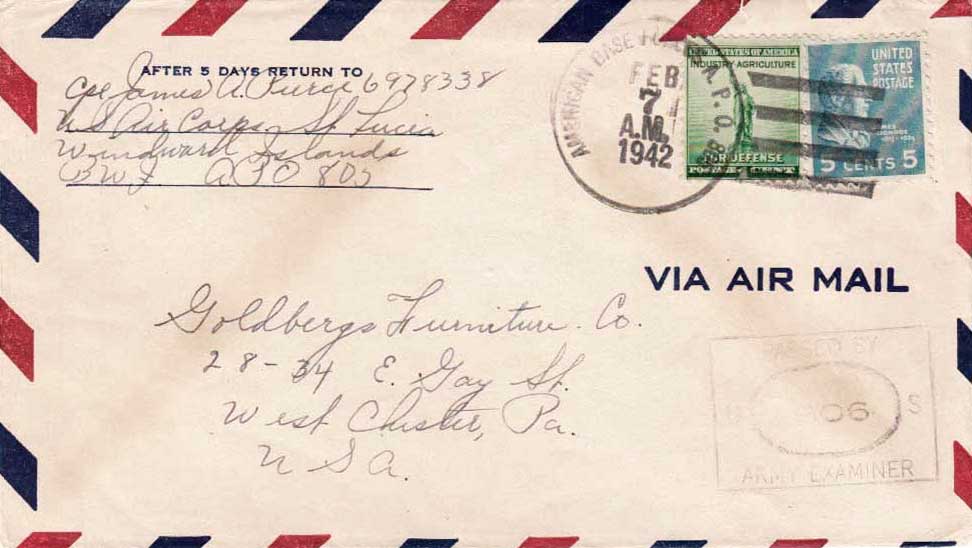 AFTER 5 DAYS RETURN TO
Cpl James A. Pierce 6978338
U S Air Corps St Lucia
Windward Islands
BWI APO 805
AMERICAN BASE A.P.O. 8
FEB
7
A.M.
1942
UNITED STATES OF AMERICA
INDUSTRY AGRICULTURE
FOR DEFENSE
POSTAGE 1 CENT
UNITED
STATES
POSTAGE
5 CENTS 5
VIA AIR MAIL
Goldbergs Furniture Co.
28-34 E. Gay St.
West Chester, Pa.
U S A.
BY
06 S
ARMY EXAMINER